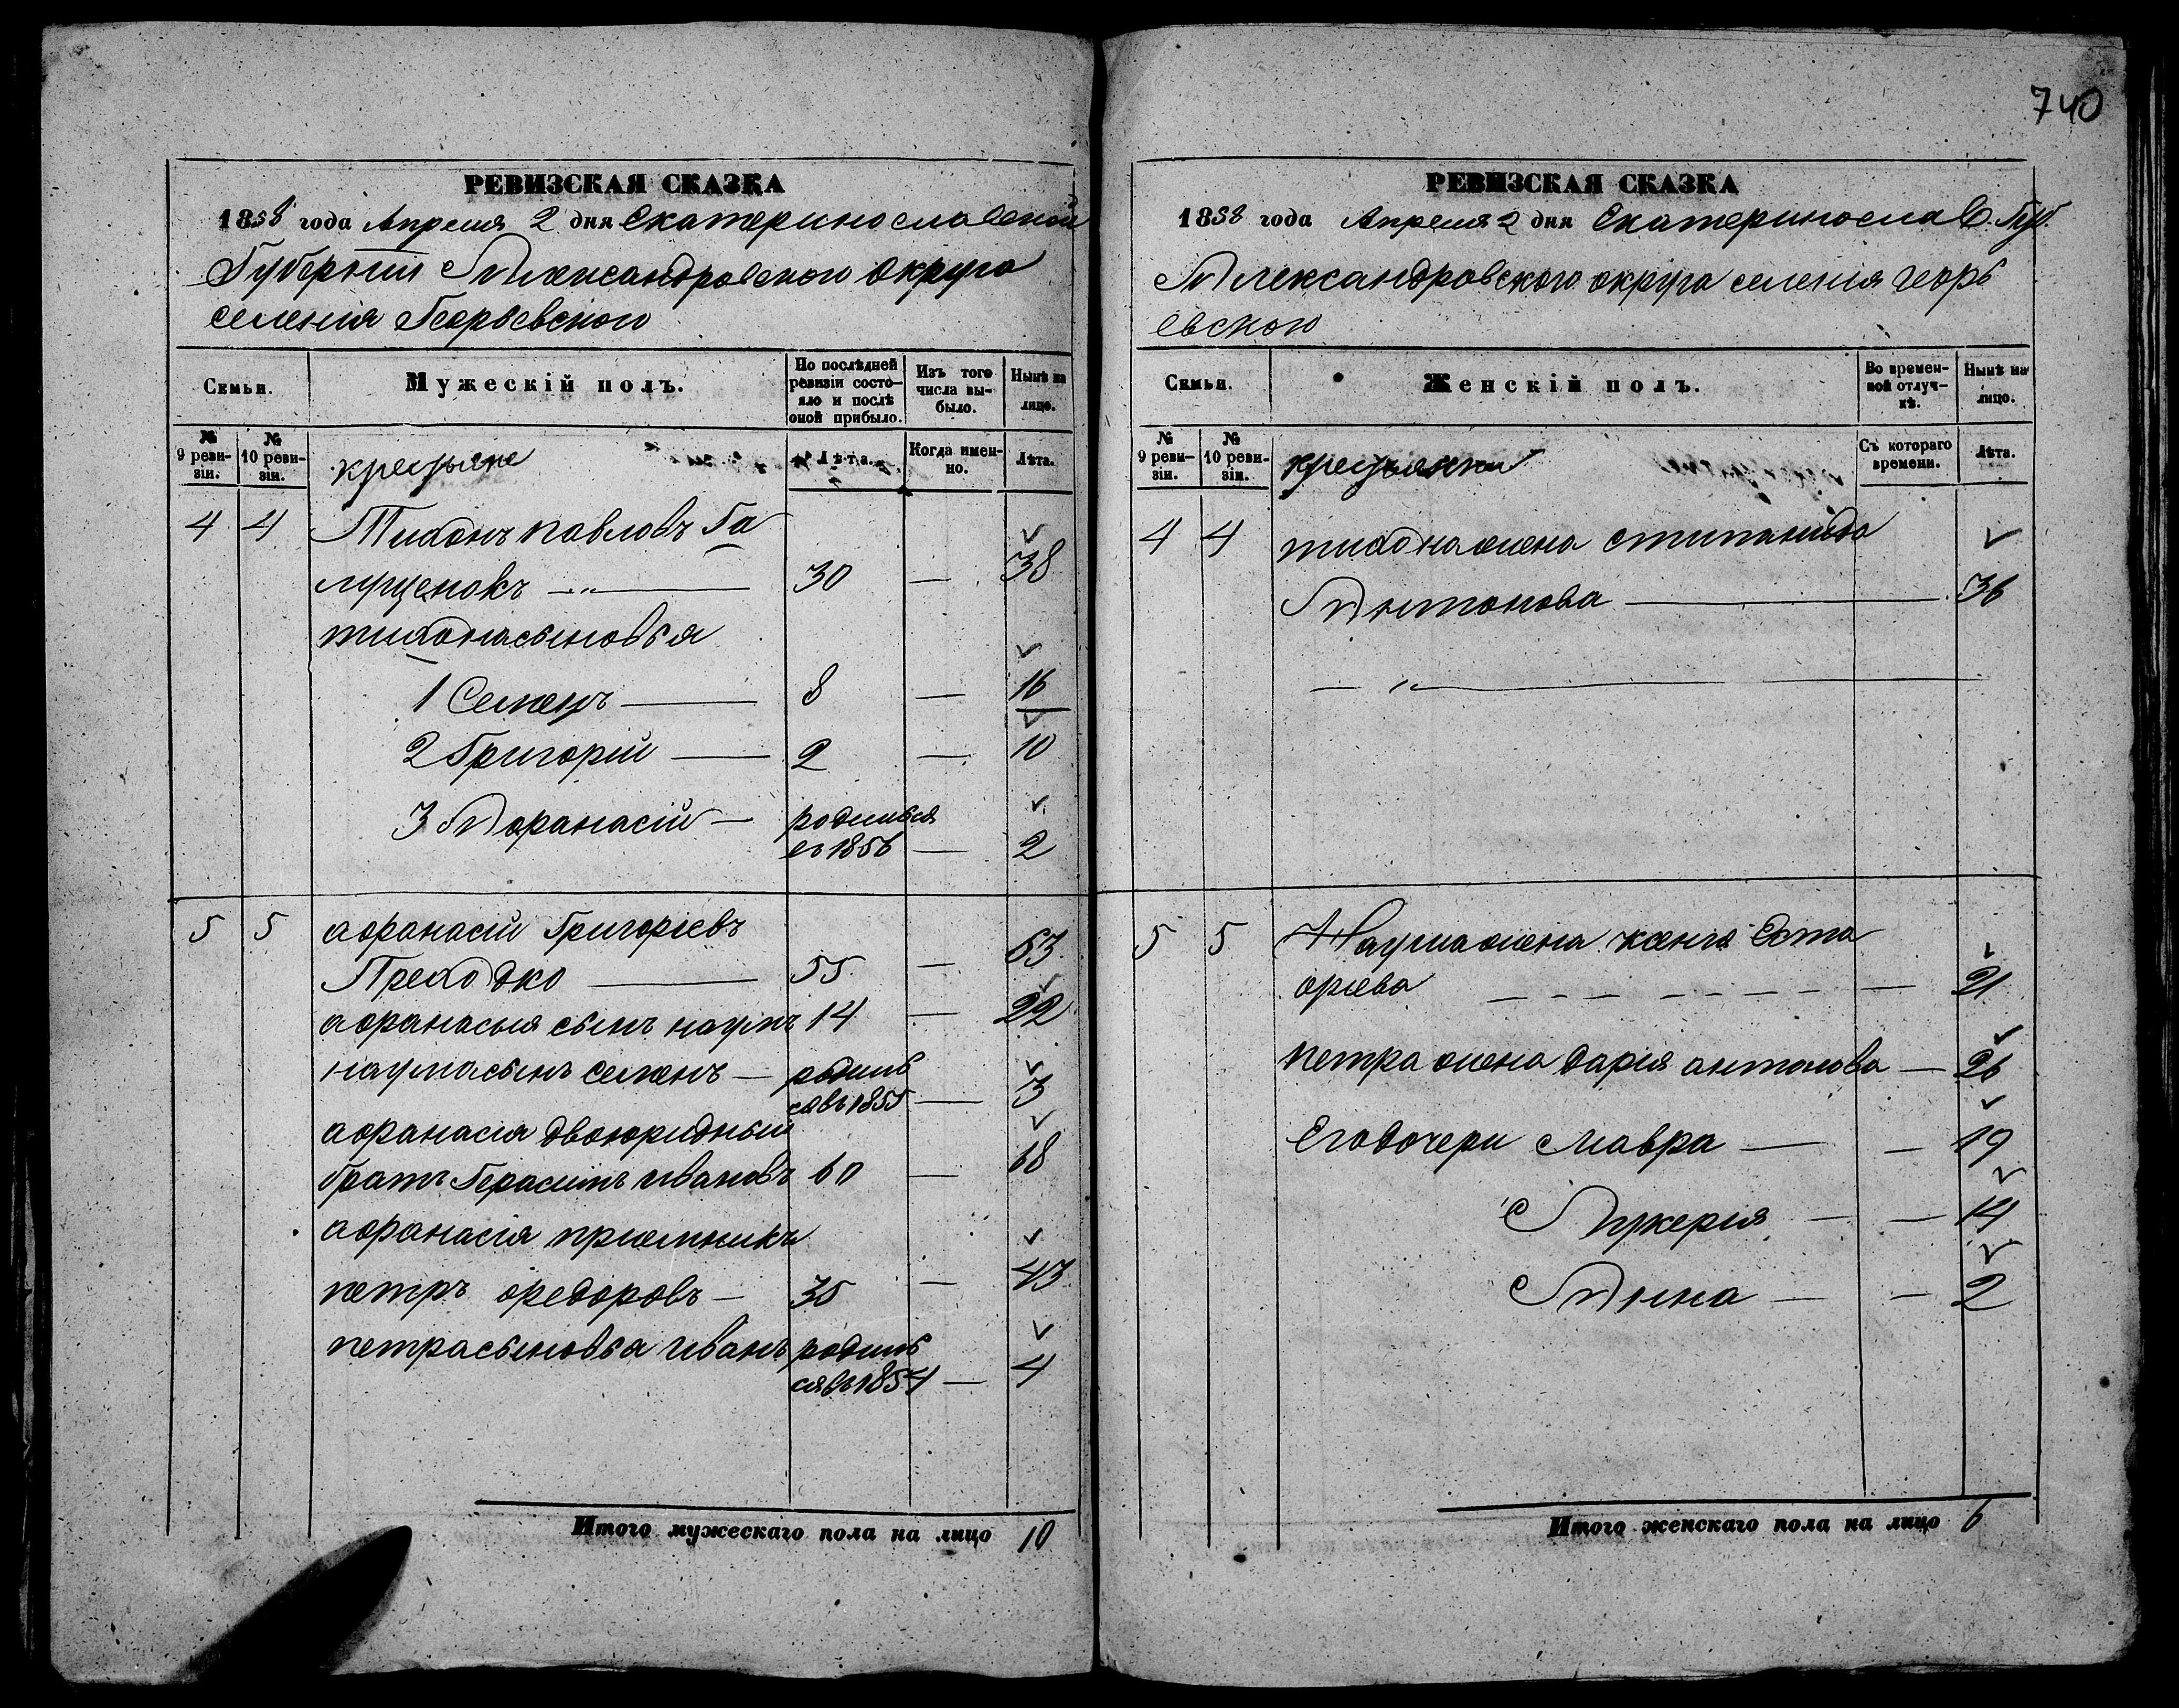 740
РЕВИЗСКАЯ СКАЗКА
1858 года Апреля 2 дня Екатеринославской
Губернии Александровского округа
селения Георьевского
Семьи.
Мужескій полъ.
По послѣдней ревизіи состояло и послѣ оной прибыло.
Изъ того числа выбыло.
Нынѣ на лицо.
№ 9 ревизіи.
№ 10 ревизіи.
крестьяне
Лѣта.
Когда именно.
Лѣта.
4 4 Тихонъ павловъ Га
лущенокъ 30 — 38
тихона сыновья
1 Семенъ — 8 — 16
2 Григорій — 2 — 10
3 Афанасій — родился
въ 1856 — 2
5 5 афанасій Григоріевъ
Преходко — 55 — 63
афанасыя сынъ наумъ 14 — 22
наума сынъ семенъ — родил
сявъ 1855 — 3
афанасія двоюридный
братъ Герасимъ ивановъ 60 — 68
афанасія приемникъ
петръ федоровъ — 35 — 43
петра сыновья иванъ родил
сявъ 1854 — 4
Итого мужескаго пола на лицо 10
РЕВИЗСКАЯ СКАЗКА
1858 года Апреля 2 дня Екатеринослав. Губ.
Александровского округа селения Георь
евского
Семьи.
Женскій полъ.
Во временной отлучкѣ.
Нынѣ на лицо.
№ 9 ревизіи.
№ 10 ревизіи.
крестьянки
Съ котораго времени.
Лѣта.
4 4 тихона жена стипанида
Антонова — 36
5 5 Наума жена ксенья
орьева — 21
петра жена дарія антонова — 26
Егодочери Мавра — 19
Лукерия — 14
Анна — 2
Итого женскаго пола на лицо 6